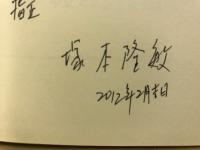 塚本隆敏
2012年2月吉日